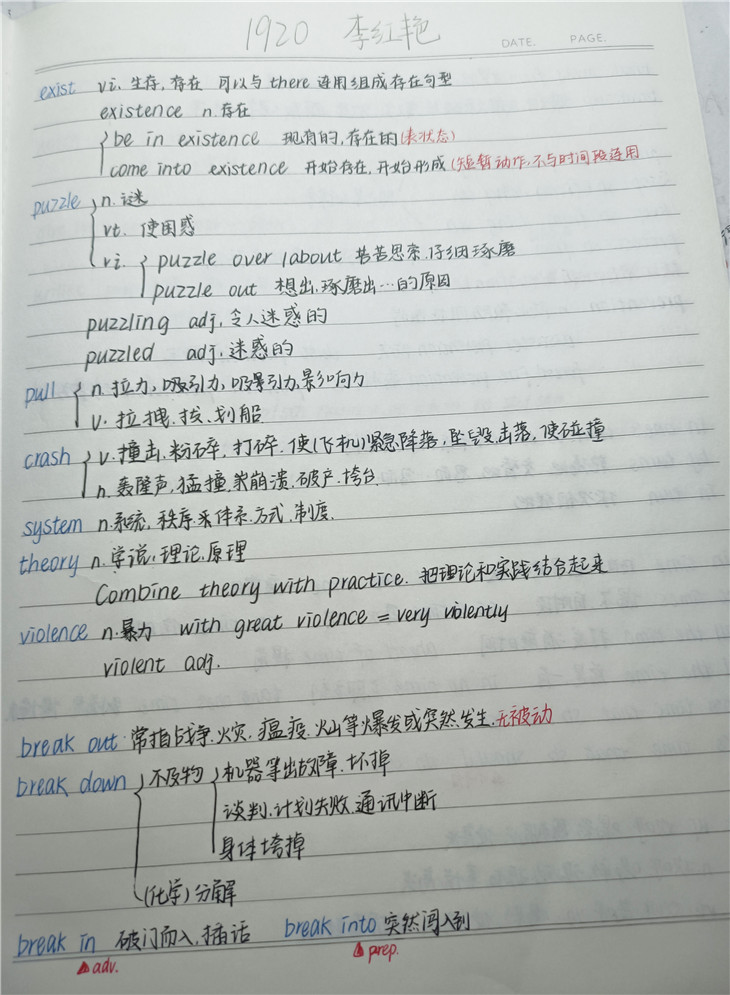 1920 李红艳
DATE. PAGE.
exist vi. 生存, 存在 可以与there连用组成存在句型
existence n. 存在
be in existence 现有的, 存在的(表状态)
come into existence 开始存在, 开始形成(短暂动作, 不与时间段连用
puzzle n. 谜
vt. 使困惑
vi. puzzle over/about 苦苦思索, 仔细琢磨
puzzle out 想出, 琢磨出…的原因
puzzling adj, 令人迷惑的
puzzled adj, 迷惑的
pull n. 拉力, 吸引力, 影响力
v. 拉拽, 拔, 划船
crash v. 撞击, 粉碎, 打碎, 使(飞机)紧急降落, 坠毁, 击落, 使碰撞
n. 轰隆声, 猛撞, 崩溃, 破产, 垮台
system n. 系统, 秩序, 体系, 方式, 制度
theory n. 学说, 理论, 原理
Combine theory with practice. 把理论和实践结合起来
violence n. 暴力 with great violence = very violently
violent adj.
break out 常指战争, 火灾, 瘟疫, 火山等爆发或突然发生, 无被动
break down 不及物 机器等出故障, 坏掉
谈判, 计划失败, 通讯中断
身体垮掉
(化学)分解
break in 破门而入, 插话 break into 突然闯入到
adv. prep.